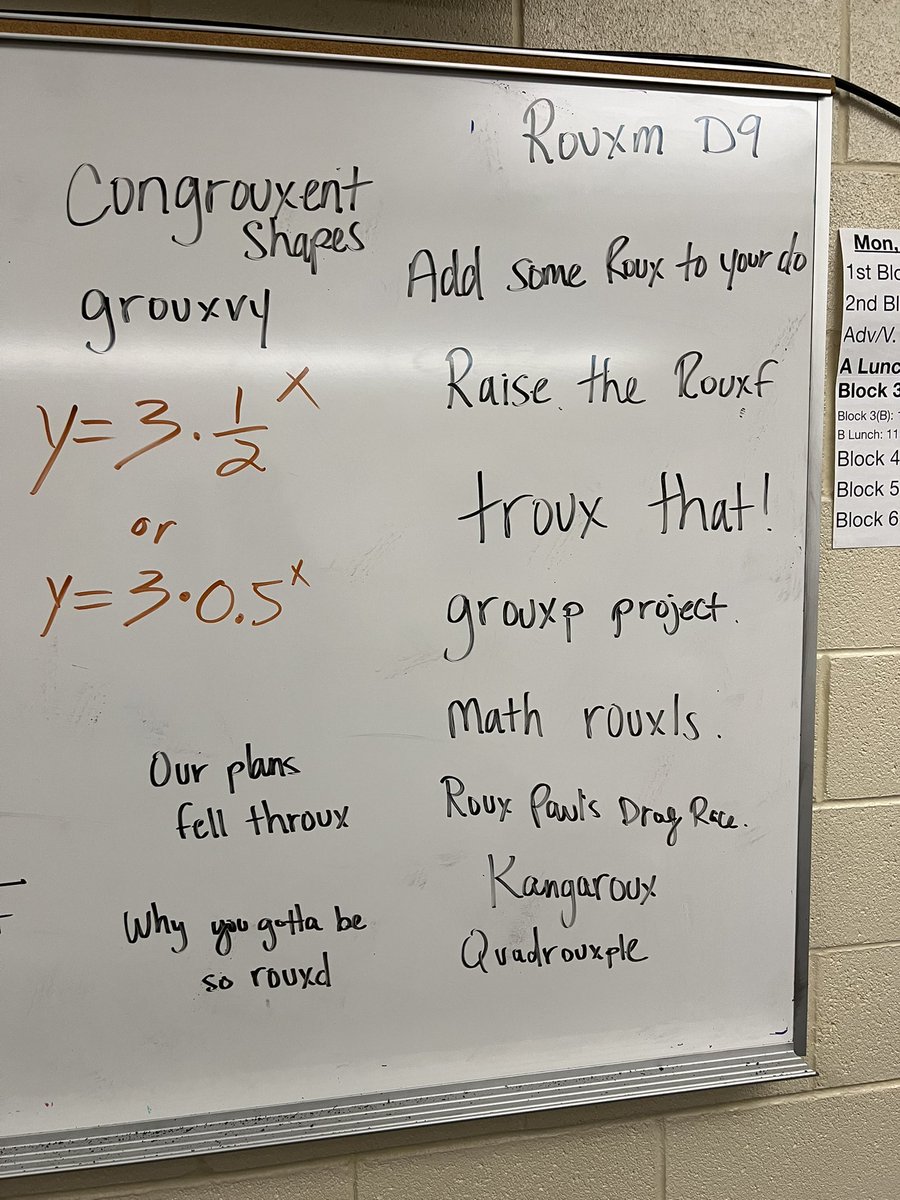 Rouxm D9
Congrouxent
Shapes
grouxvy
y=3·1/2^x
or
y=3·0.5^x
Our plans
fell throux
Why you gotta be
so rouxd
Add some Roux to your do
Raise the Rouxf
troux that!
grouxp project.
Math rouxls.
Roux Paul's Drag Race.
Kangaroux
Quadrouxple
Mon,
1st Blo
2nd Bl
Adv/V.
A Lunc
Block 3
Block 3(B): 1
B Lunch: 11
Block 4
Block 5
Block 6